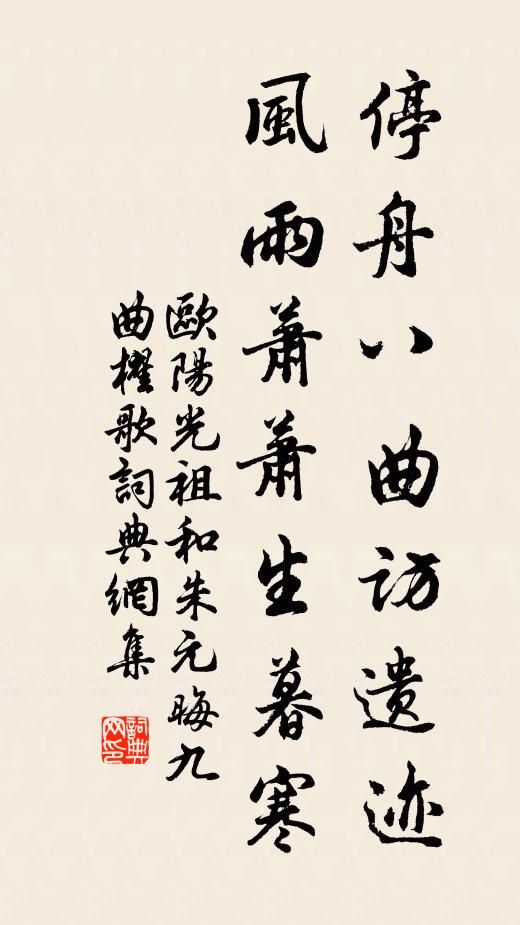 停舟八曲访遗迹
風雨蕭蕭生暮寒
歐陽光祖和朱元晦九
曲櫂歌詞典網集
詞典
网印